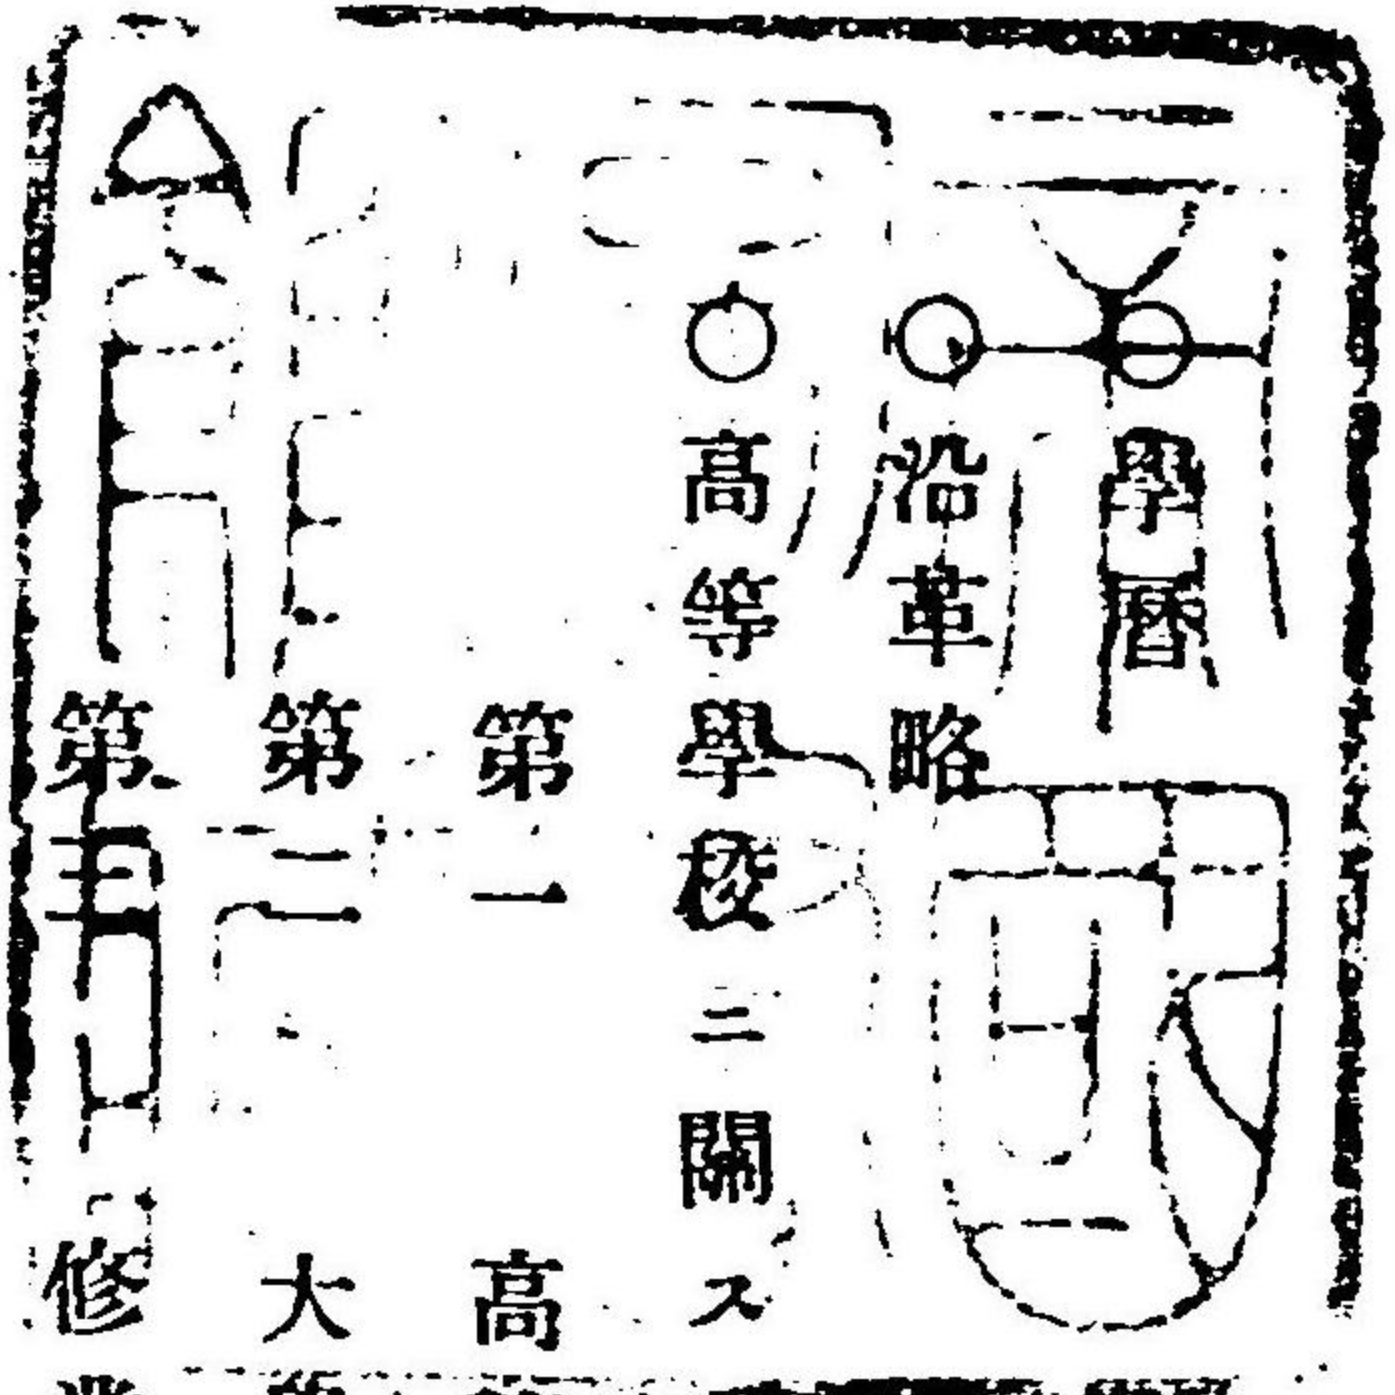 ○學曆
○沿革略
○高等學校ニ關ス
第一 高
第二 大
第三 修